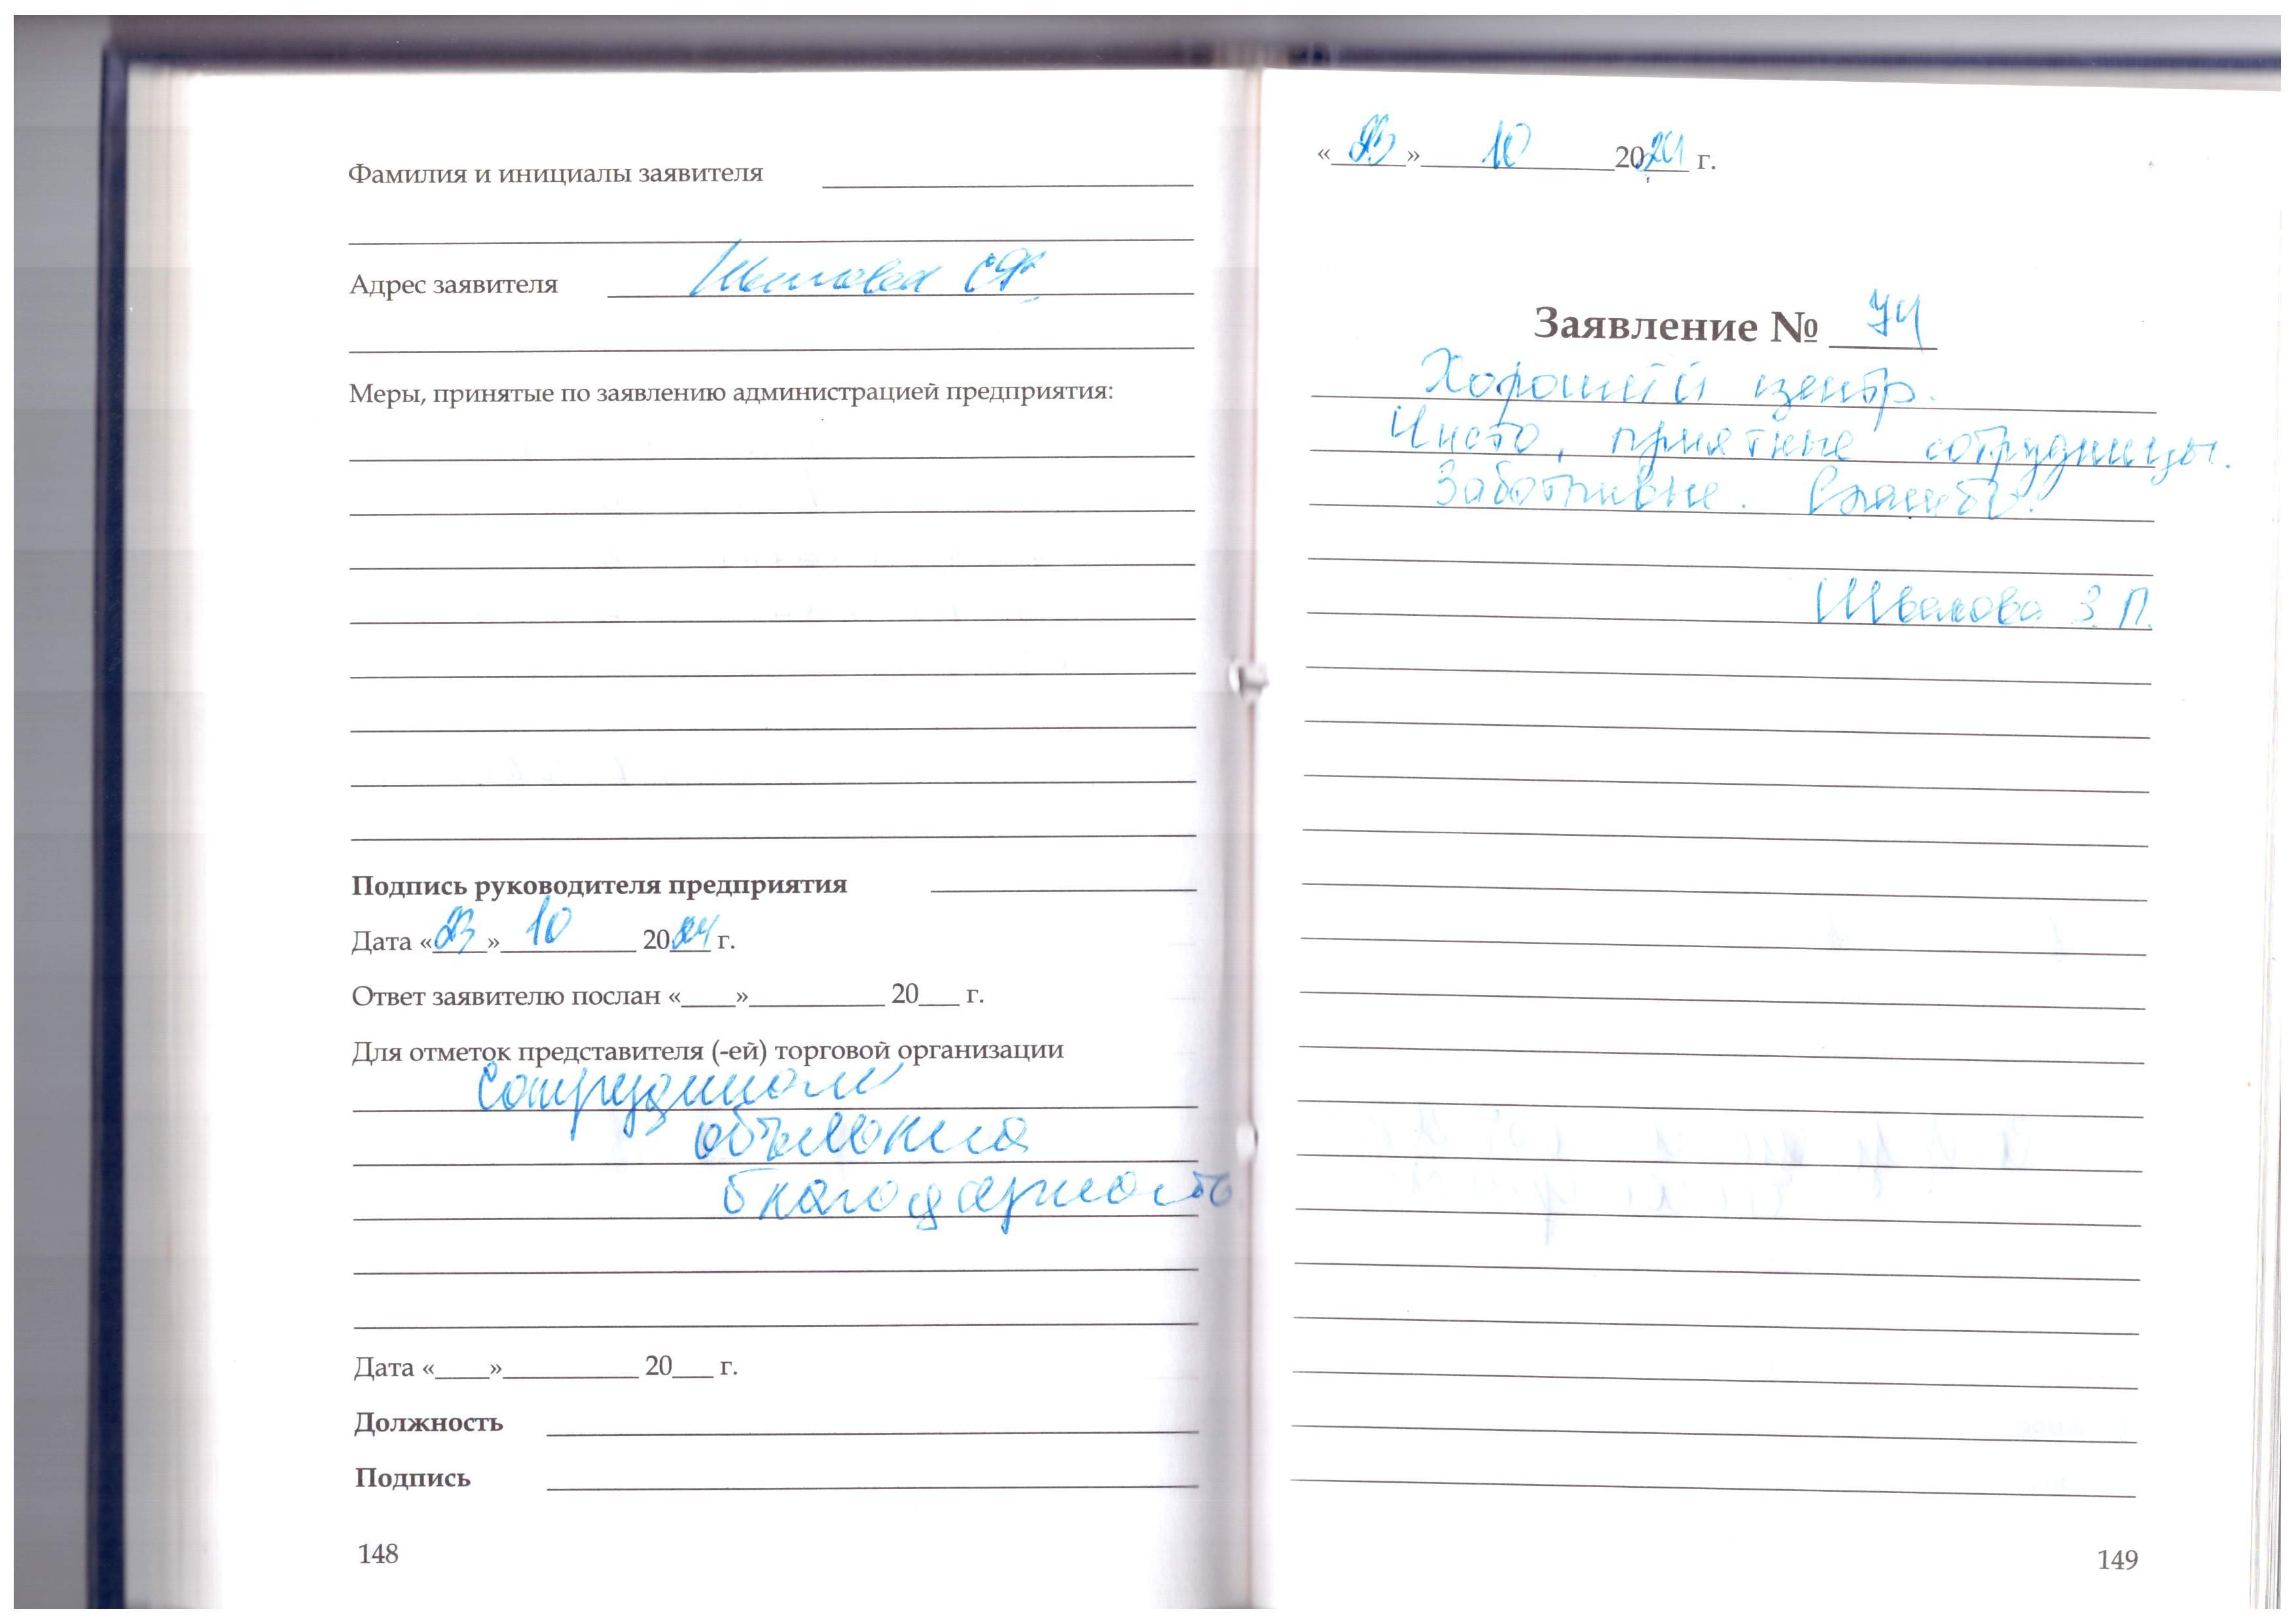 Фамилия и инициалы заявителя
Адрес заявителя
Меры, принятые по заявлению администрацией предприятия:
Подпись руководителя предприятия
Дата «23» 10 2024 г.
Ответ заявителю послан «____»__________ 20___ г.
Для отметок представителя (-ей) торговой организации
Сотрудникам
объявлена
благодарность
Дата «____»__________ 20___ г.
Должность
Подпись
148
«23» 10 2024 г.
Заявление № 74
Хороший центр.
Чисто, приятные сотрудницы.
Заботливые. Спасибо!
Швалова З. П.
149